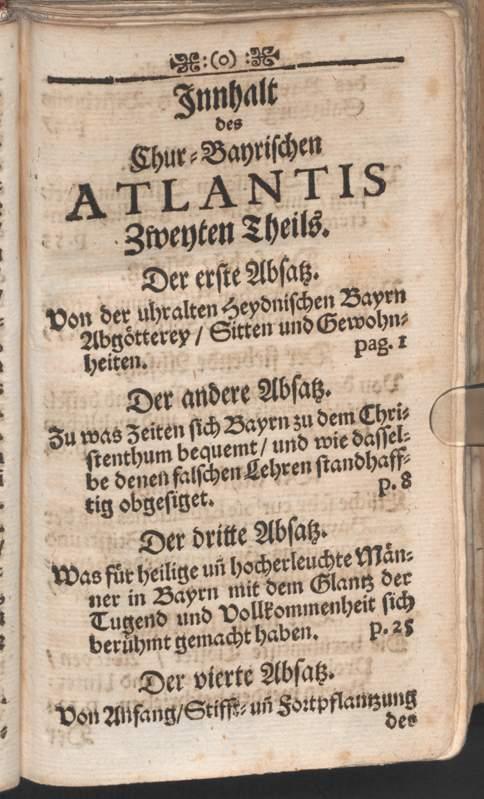 :(o):
Innhalt
des
Chur-Bayrischen
ATLANTIS
Zweyten Theils.
Der erste Absatz.
Von der uhralten Heydnischen Bayrn
Abgötterey / Sitten und Gewohn-
heiten. pag. 1
Der andere Absatz.
Zu was Zeiten sich Bayrn zu dem Chri-
stenthum bequemt / und wie dassel-
be denen falschen Lehren standhaff-
tig obgesiget. p. 8
Der dritte Absatz.
Was für heilige uñ hocherleuchte Män-
ner in Bayrn mit dem Glantz der
Tugend und Vollkommenheit sich
berühmt gemacht haben. p. 25
Der vierte Absatz.
Von Anfang / Stifft- uñ Fortpflantzung
der